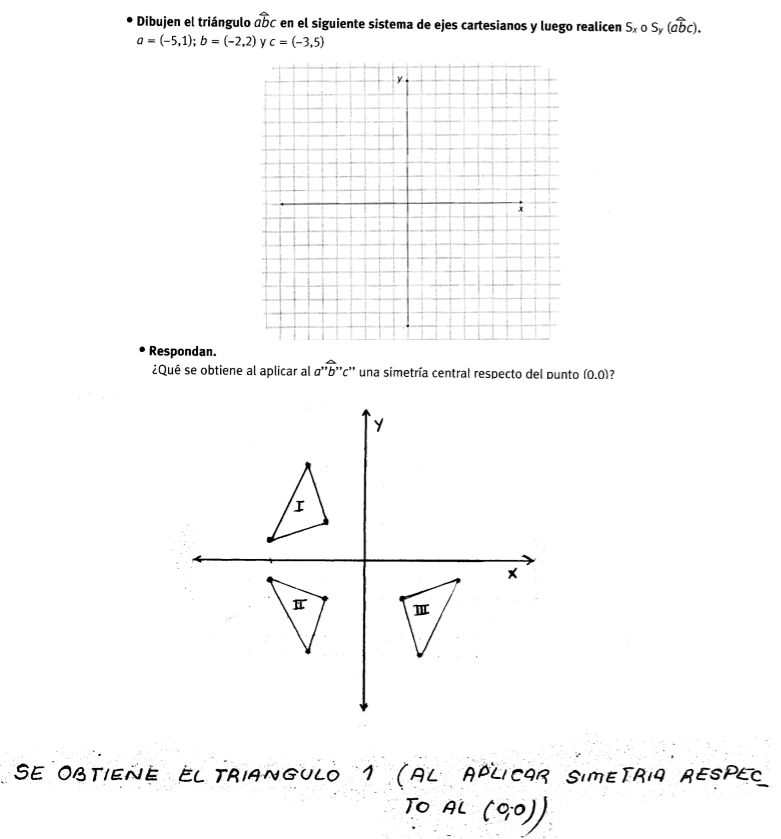 • Dibujen el triángulo abc en el siguiente sistema de ejes cartesianos y luego realicen Sx o Sy (abc).
a = (–5,1); b = (–2,2) y c = (–3,5)
y
x
• Respondan.
¿Qué se obtiene al aplicar al a”b”c” una simetría central respecto del punto (0,0)?
y
I
x
II
III
SE OBTIENE EL TRIANGULO 1 (AL APLICAR SIMETRIA RESPEC_
TO AL (0;0))